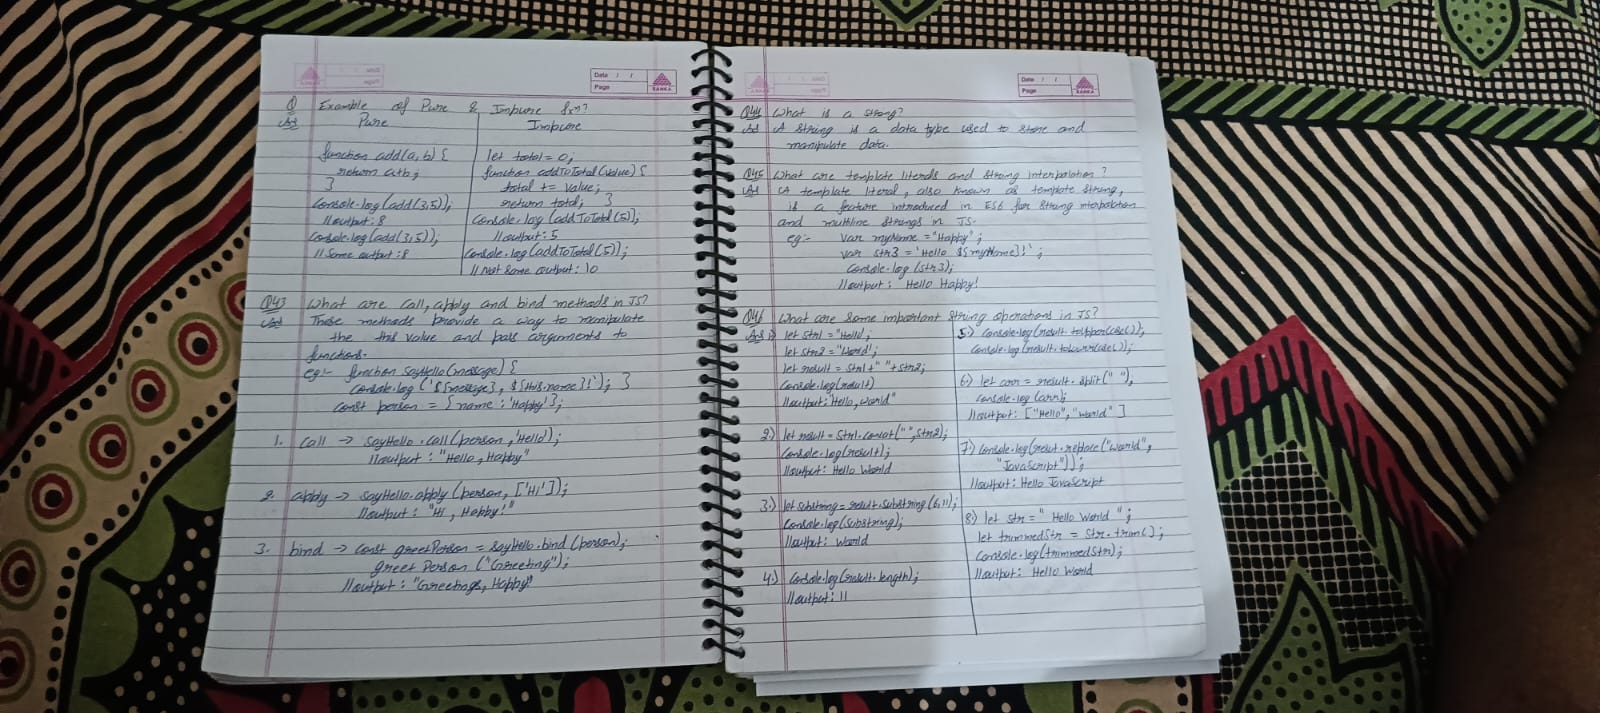 Date / /
Page
SANKA
Q Example of Pure & Impure fxn?
Ans Pure
function add(a, b) {
return a+b;
}
Console.log(add(3,5));
//output: 8
Console.log(add(3,5));
//Same output: 8
Impure
let total = 0;
function addToTotal(value) {
total += value;
return total; }
Console.log(addToTotal(5));
//output: 5
Console.log(addToTotal(5));
//Not Same output: 10
Q43 What are call, apply and bind methods in JS?
Ans These methods provide a way to manipulate
the this value and pass arguments to
functions.
eg:- function sayHello(message) {
Console.log(`${message}, ${this.name}!`); }
Const person = { name: 'Happy' };
1. Call → sayHello.call(person, 'Hello');
//output: "Hello, Happy"
2. apply → sayHello.apply(person, ['Hi']);
//output: "Hi, Happy!"
3. bind → Const greetPerson = sayHello.bind(person);
greetPerson("Greeting");
//output: "Greetings, Happy!"
Date / /
Page
SANKA
Q44 What is a string?
Ans A string is a data type used to store and
manipulate data.
Q45 What are template literals and string interpolation?
Ans A template literal, also known as template string,
is a feature introduced in ES6 for string interpolation
and multiline strings in JS.
eg:- Var myName = "Happy";
Var str3 = `Hello ${myName}!`;
Console.log(str3);
//output: Hello Happy!
Q46 What are some important string operations in JS?
Ans 1) let str1 = "Hello";
let str2 = "World";
let result = str1 + " " + str2;
Console.log(result)
//output: "Hello, world"
2) let result = str1.concat(" ", str2);
Console.log(result);
//output: Hello World
3.) let substring = result.substring(6,11);
Console.log(substring);
//output: World
4.) Console.log(result.length);
//output: 11
5.) Console.log(result.toUpperCase());
Console.log(result.toLowerCase());
6.) let arr = result.split(" ");
Console.log(arr);
//output: ["Hello", "World"]
7.) Console.log(result.replace("World",
"JavaScript"));
//output: Hello JavaScript
8.) let str = " Hello World ";
let trimmedStr = Str.trim();
Console.log(trimmedStr);
//output: Hello World